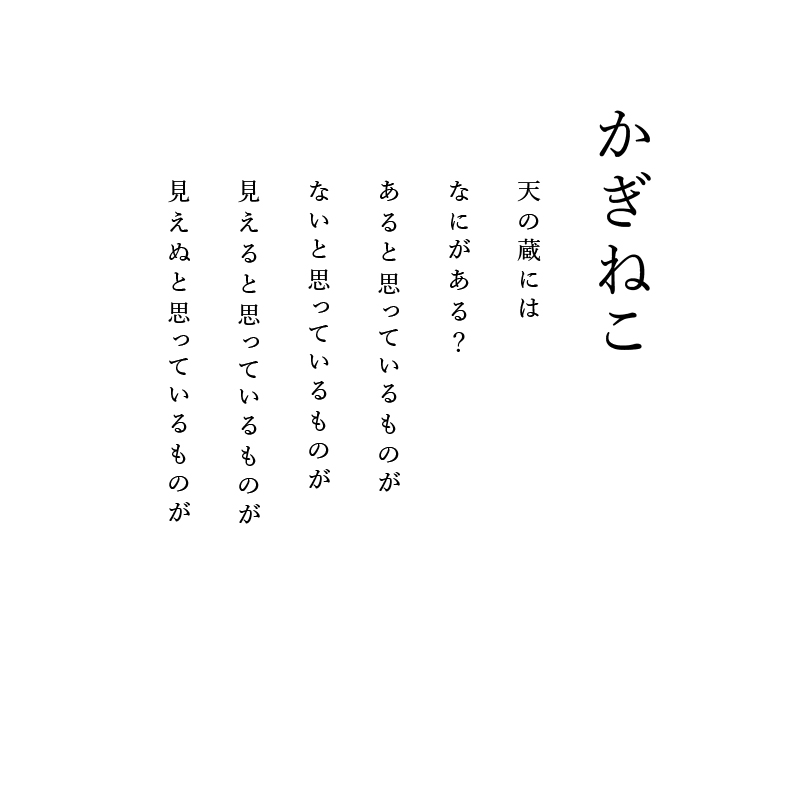 かぎねこ
天の蔵には
なにがある？
あると思っているものが
ないと思っているものが
見えると思っているものが
見えぬと思っているものが